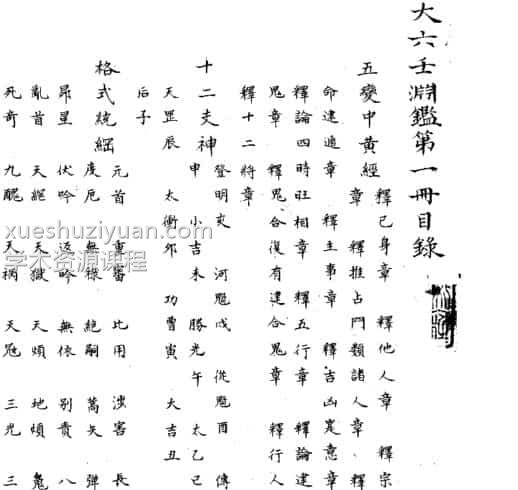 大六壬淵鑑第一冊目錄
五變中黃經
釋己身章 釋他人章 釋宗
章 釋推占門類諸人章 釋
命建通章 釋主事章 釋吉凶是意章
釋論四時旺相章 釋五行章 釋論建
鬼章 釋鬼合復有建合鬼章 釋行人
釋十二將章
十二支神
登明亥 河魁戌 從魁酉 傳
申 小吉未 勝光午 太乙巳
天罡辰 太衝卯 功曹寅 大吉丑
后子
格式統綱
元首 重審 比用 涉害 長
度厄 無祿 絕嗣 蒿矢 彈
昴星 伏吟 返吟 無依 別責 八
亂首 天網 天獄 天煩 地煩 鬼
死奇 九醜 天禍 天寇 三光 三
xueshuziyuan.com
学术资源课程